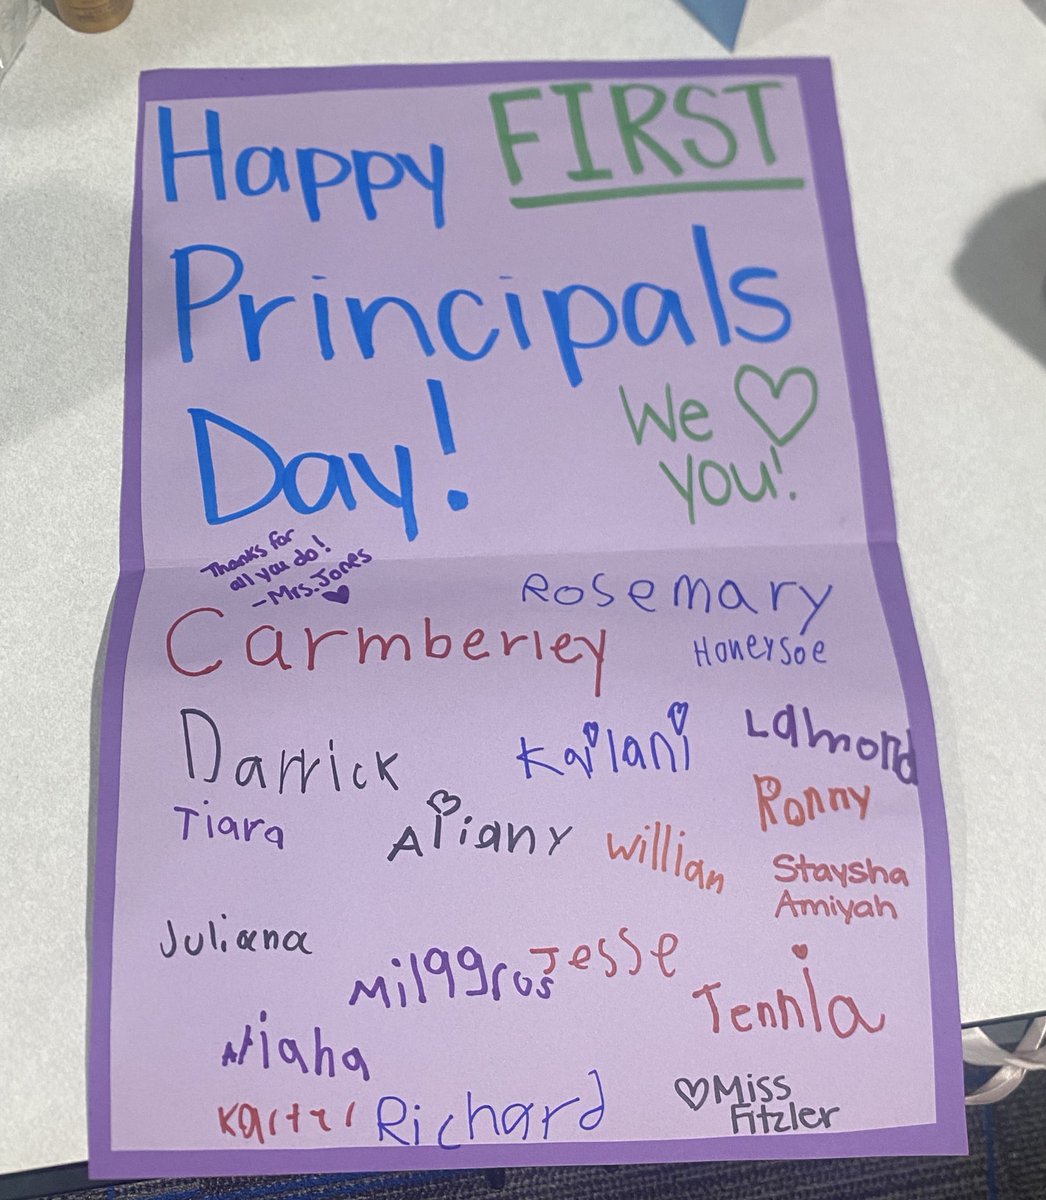 Happy FIRST
Principals
Day!
We ♡
you!
Thanks for
all you do!
-Mrs. Jones
Rosemary
Carmberley
Honeysoe
Darrick
Kailani
Lamond
Tiara
Aliany
Willian
Ronny
Staysha
Amiyah
Juliana
Milagros
Jesse
Tennia
Niaha
Richard
♡Miss
Fitzler